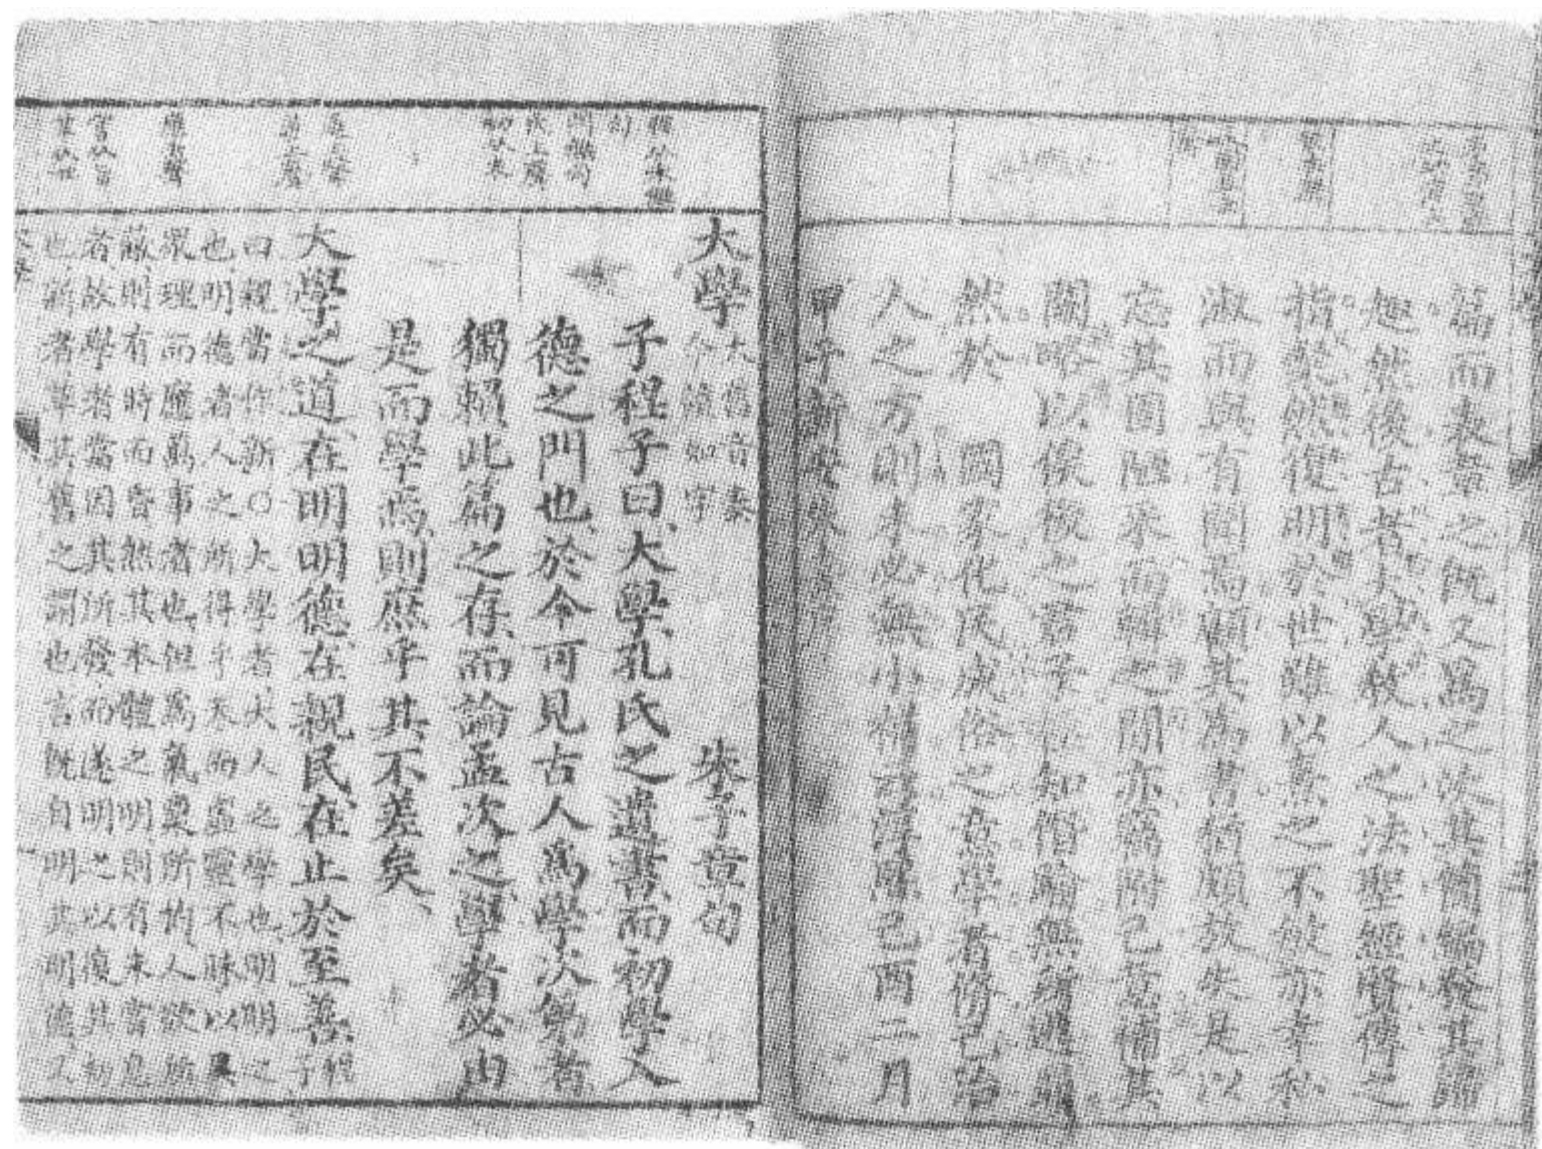 篇而表章之既又爲之次其簡編發其歸
趣然後古者大學教人之法聖經賢傳之
指粲然復明於世雖以熹之不敏亦幸私
淑而與有聞焉顧其爲書猶頗放失是以
忘其固陋采而輯之間亦竊附己意補其
闕略以俟後之君子極知僭踰無所逃罪
然於 國家化民成俗之意學者修己治
人之方則未必無小補云淳熙己酉二月
甲子新安朱熹序
大學 大舊音泰今讀如字 朱子章句
子程子曰大學孔氏之遺書而初學入
德之門也於今可見古人爲學次第者
獨賴此篇之存而論孟次之學者必由
是而學焉則庶乎其不差矣
大學之道在明明德在親民在止於至善 程子
曰親當作新○大學者大人之學也明明之
也明德者人之所得乎天而虛靈不昧以具
衆理而應萬事者也但爲氣稟所拘人欲所
蔽則有時而昏然其本體之明則有未嘗息
者故學者當因其所發而遂明之以復其初
也新者革其舊之謂也言既自明其明德又